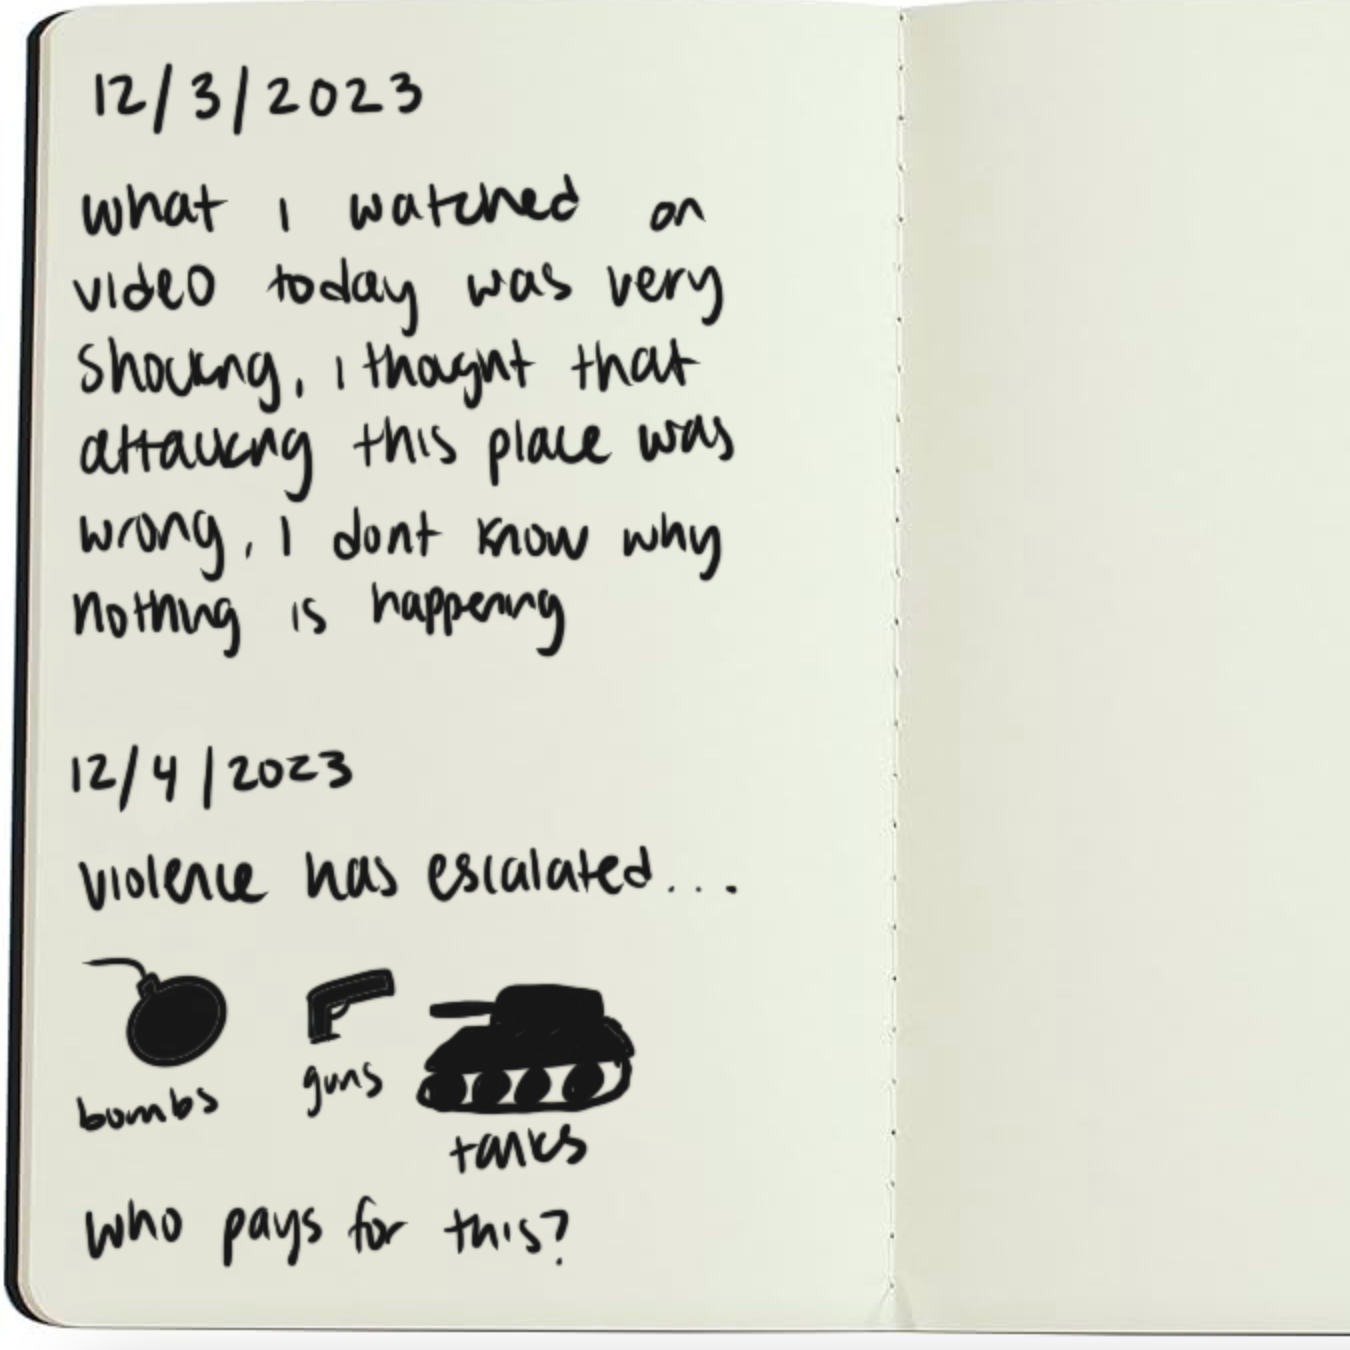 12/3/2023
what i watched on
video today was very
shocking, i thought that
attacking this place was
wrong, I dont know why
nothing is happening
12/4/2023
violence has escalated...
bombs
guns
tanks
who pays for this?